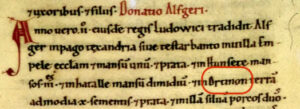 uxoribus 7 filiis. Donatio Alfgeri
Anno vero .ii. eiusdē regis Ludowici tradidit Alf
ger in pago texandria sitis testarbanto in uilla Em
pele ecclam 7 mansū unū 7 prata. 7 in hunsere man
sos .iii. 7 in haralle mansū dimidiū. 7 in Orimon terrā
ad modia .x. sementis 7 prata. 7 in illam siluā porcos duos